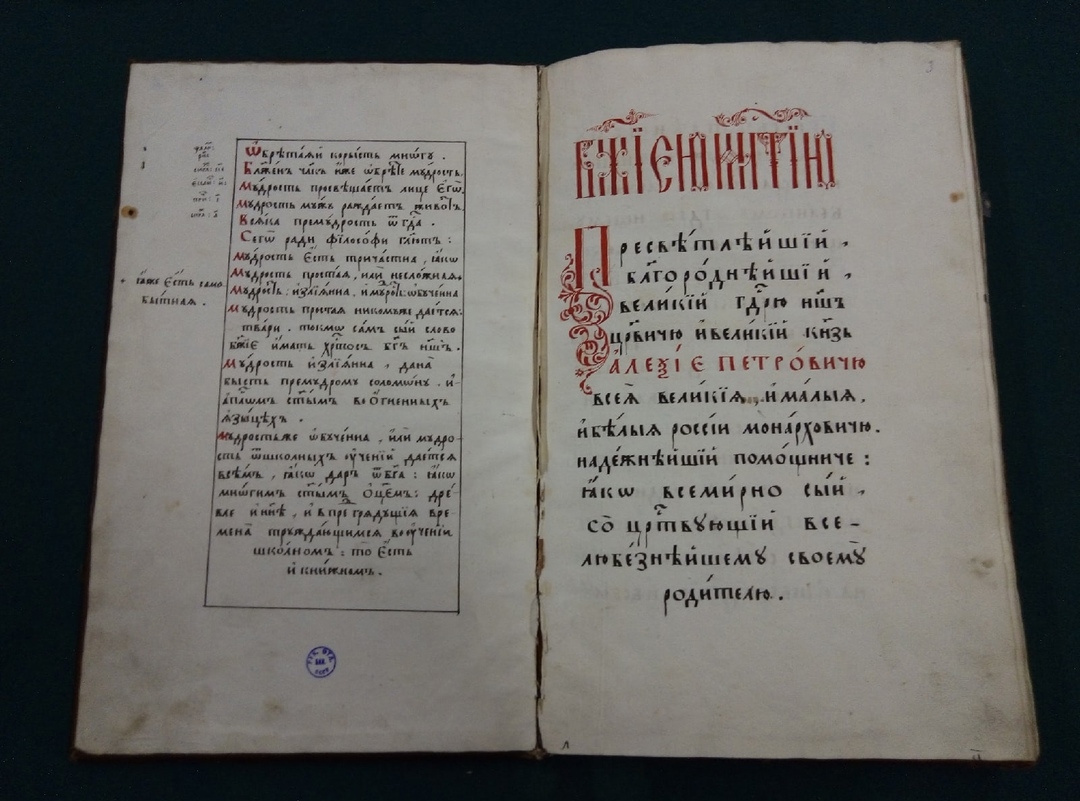 Ѡбрѣтаѧй корысть многу.
Бл҃женъ чл҃къ иже ѡбрѣте мудрость.
Мудрость просвѣщаетъ лице єгѡ.
Мудрость мужъ раждаетъ
Всѧка премудрость ѿ гд҃а.
Сегѡ ради філосѡфи гл҃ютъ:
Мудрость єсть тричастна, ꙗкѡ
Мудрость простаѧ, илѝ несложнаѧ.
Мудрость: излїѧнна, и мудрость: ѡбученна
Мудрость простаѧ никомуже даетсѧ:
твари. токмѡ самъ сый слово
бж҃їе имать хрⷭ҇тосъ бг҃ъ нш҃ъ.
Мудрость излїѧнна, дана
бысть премудрому соломѡну. и
апⷭ҇лѡмъ ст҃ымъ во ѻгненныхъ
ѧзыцѣхъ.
Мудростьже ѡбученна, или мудро-
сть ѿ школныхъ оученїй даетсѧ
всѣмъ, ꙗкѡ даръ ѿ бг҃а: ꙗкѡ
мнѡгимъ ст҃ымъ ѻц҃емъ: дре-
вле и нн҃ѣ, и в предгрѧдущїѧ вре-
мена труждающимсѧ во оученїи
школномъ: то єсть
и книжномъ.
ꙗже єсть само
бытнаѧ.
3
Пресвѣтлѣйшїй,
бл҃городнѣйшїй,
великїй гдⷭ҇рю нш҃ъ
цр҃вичю и великїй кн҃зь
алеѯїе петровичю
всеѧ великїѧ, и малыѧ,
и бѣлыѧ россїи монарховичю.
надежнѣйшїй помощниче:
ꙗкѡ всемирно сый,
со црⷭ҇твующїй все-
любезнѣйшему своему
родителю.